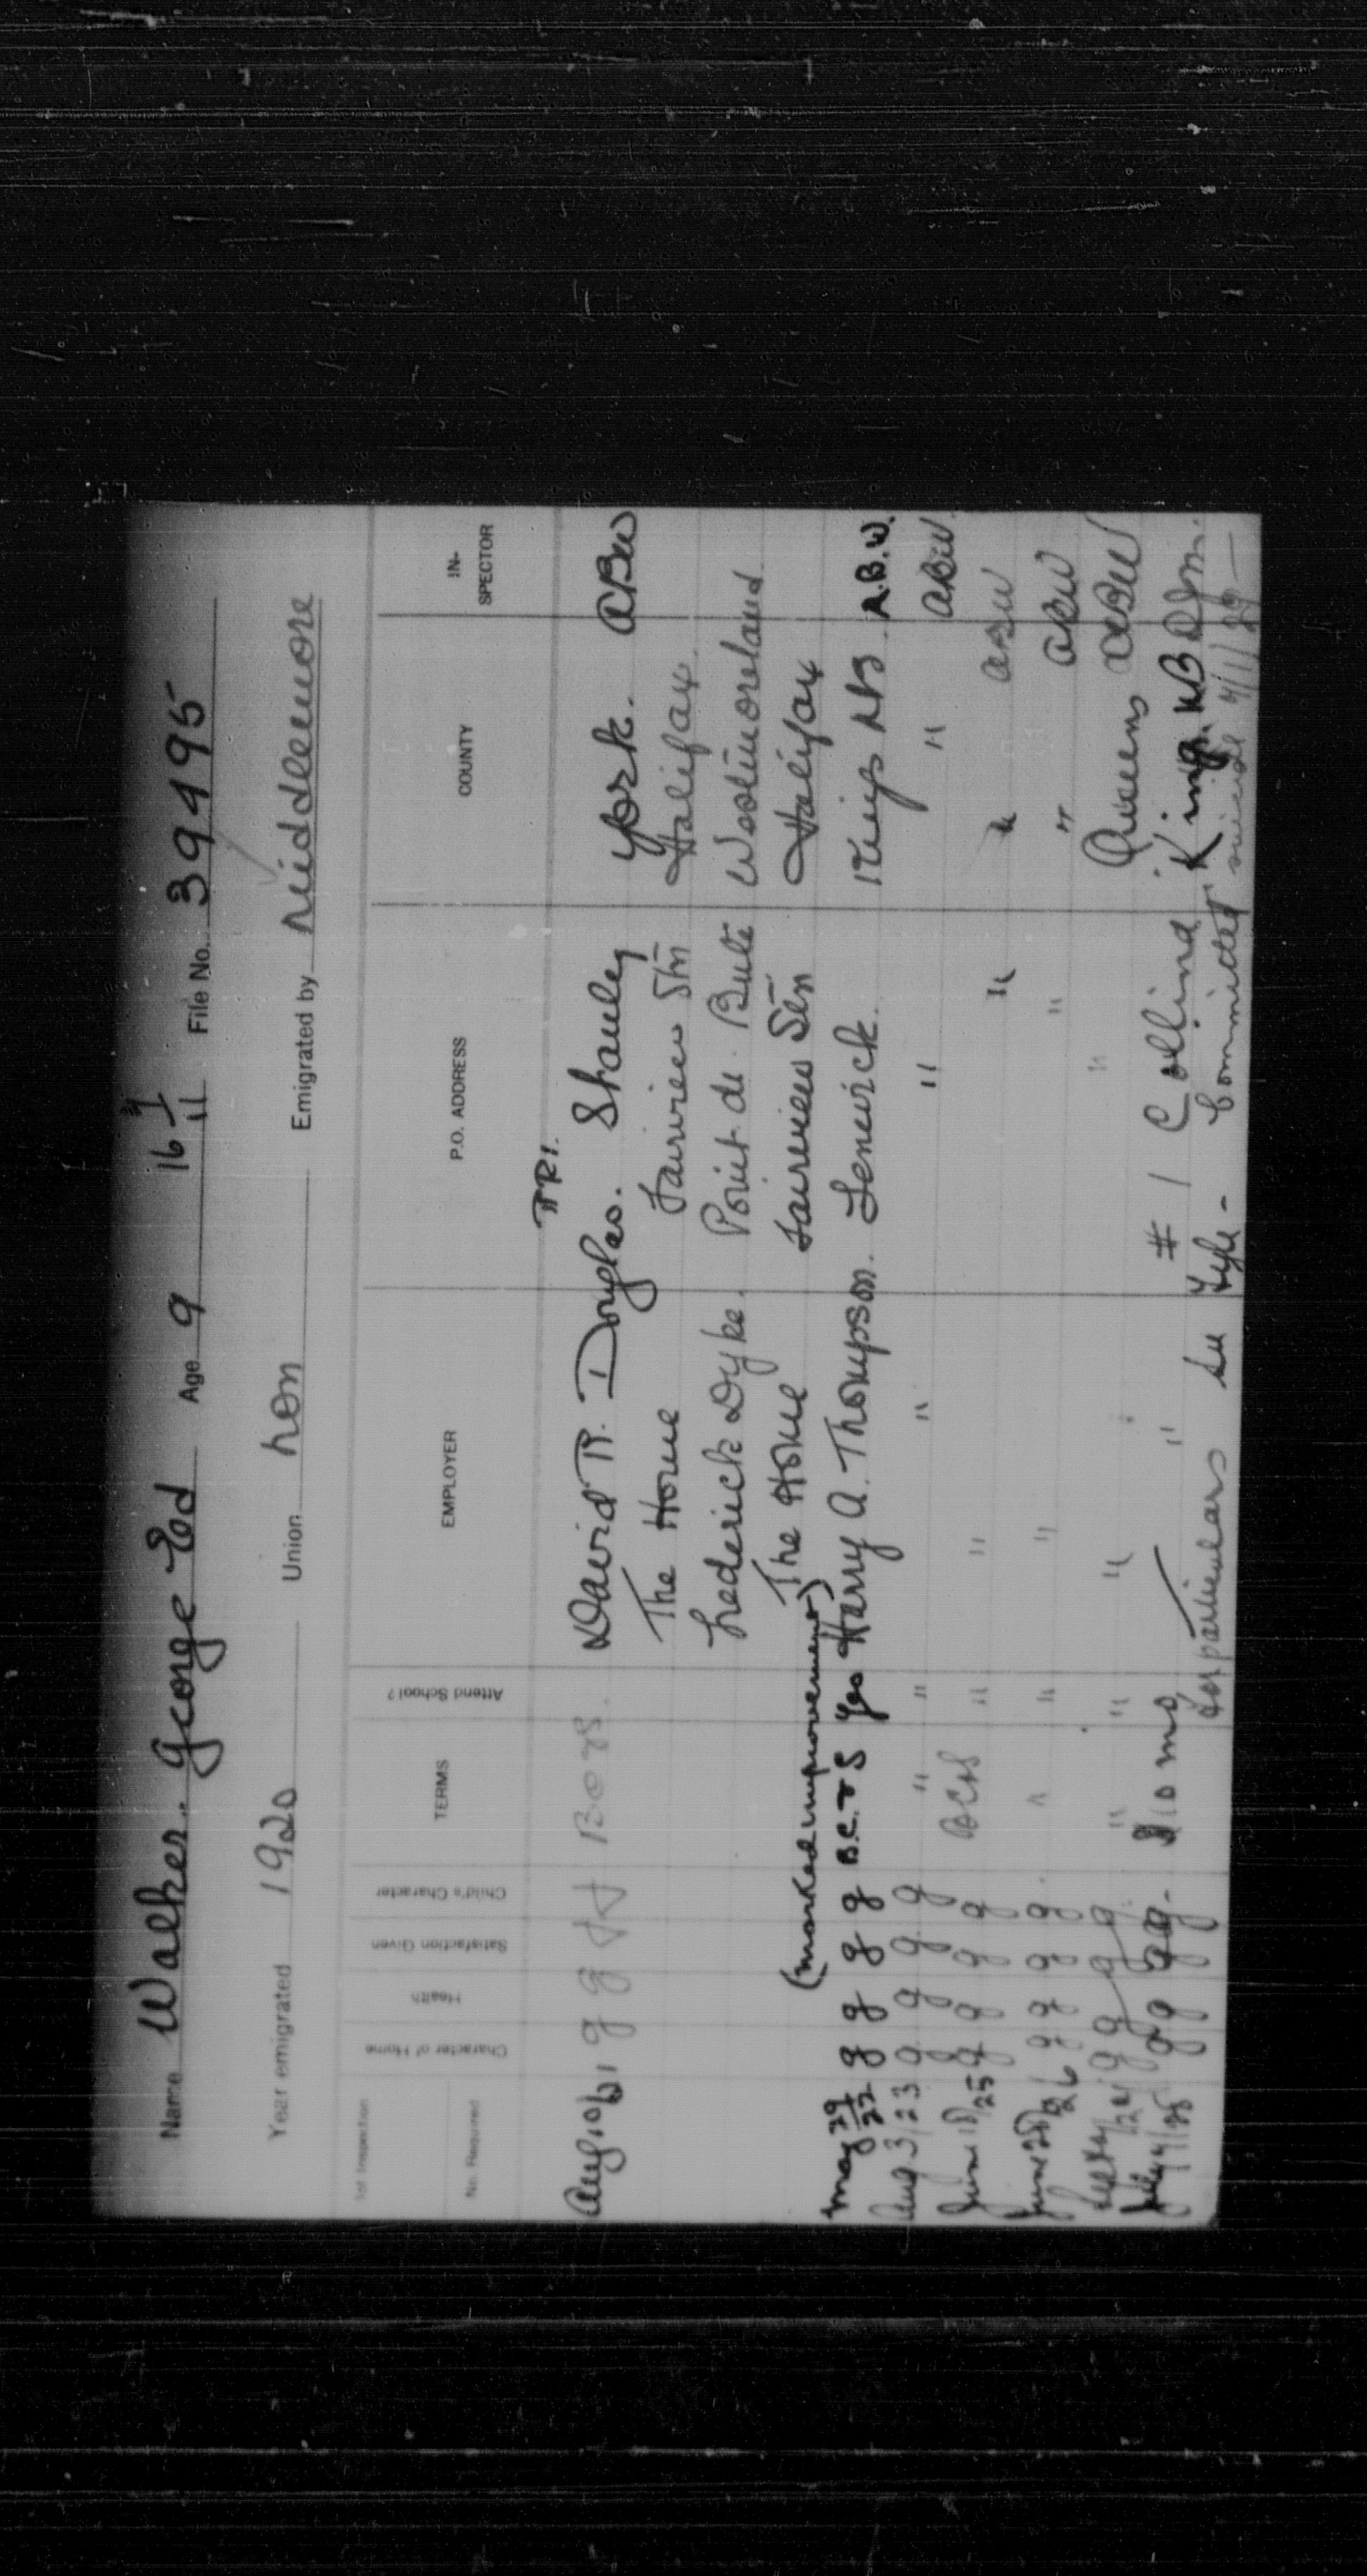 Name Walker. George Ed Age 9 16 7/11 File No. 39495
Year emigrated 1920 Union non Emigrated by Middlemore
1st Inspection
No. Required
Character of Home
Health
Satisfaction Given
Child's Character
TERMS
Attend School?
EMPLOYER
P.O. ADDRESS
COUNTY
IN-
SPECTOR
RR1.
Aug 10/21 g g f f B C & S. David R. Douglas. Stanley York. ABW
The Home Fairview Stn Halifax.
Frederick Dyke. Point de Bute Westmoreland.
The Home Fairview Stn Halifax
(marked improvement)
May 29/22 g g g g B.C. & S Yes Harry A. Thompson. Lenwick. Kings NB. A.B.W.
Aug 3/23 g g g g " " " " " ABW.
June 18/25 g g g g BC&S " " " " ABW
June 28/26 g g g g " " " " ABW
g g g g " " " " Queens ABW
July 4/28 g g g g 10 mo " # 1 Collina Kings. NB
For particulars see Fyle - Committed suicide 4/1/29 -